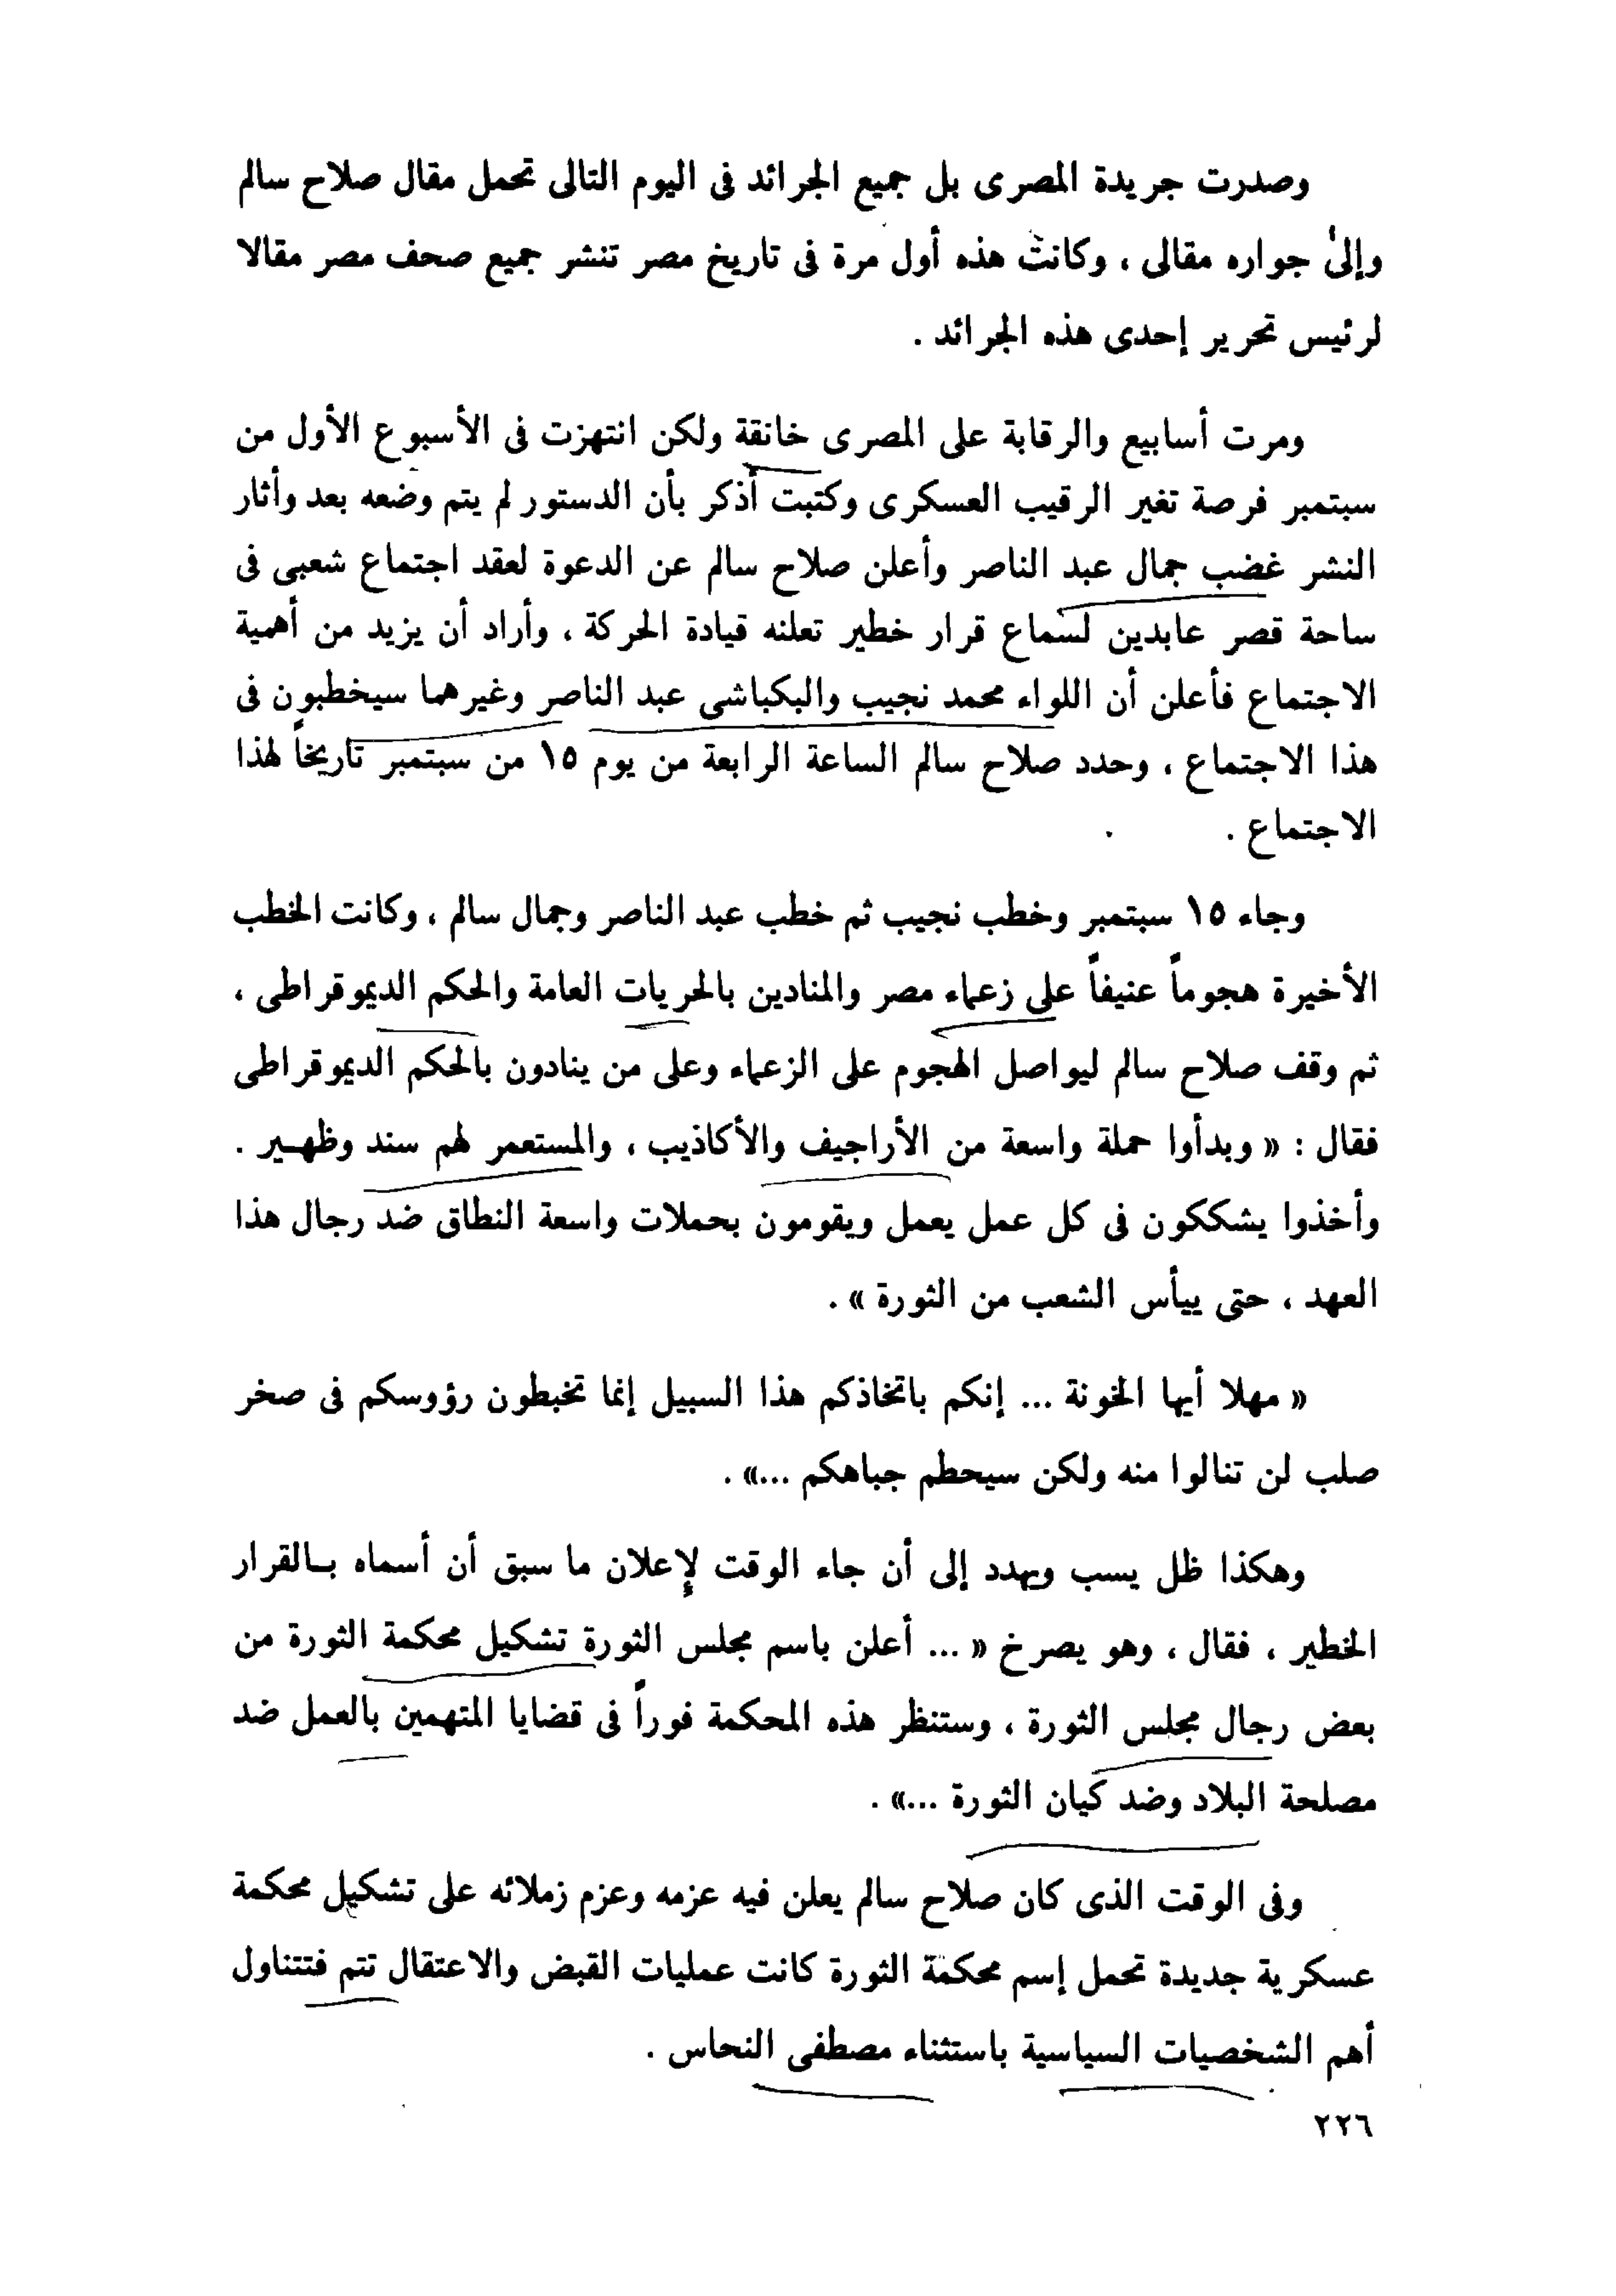 وصدرت جريدة المصرى بل جميع الجرائد فى اليوم التالى تحمل مقال صلاح سالم
وإلى جواره مقالى ، وكانت هذه أول مرة فى تاريخ مصر تنشر جميع صحف مصر مقالا
لرئيس تحرير إحدى هذه الجرائد .
ومرت أسابيع والرقابة على المصرى خانقة ولكن انتهزت فى الأسبوع الأول من
سبتمبر فرصة تغير الرقيب العسكرى وكتبت أذكر بأن الدستور لم يتم وضعه بعد وأثار
النشر غضب جمال عبد الناصر وأعلن صلاح سالم عن الدعوة لعقد اجتماع شعبى فى
ساحة قصر عابدين لسماع قرار خطير تعلنه قيادة الحركة ، وأراد أن يزيد من أهمية
الاجتماع فأعلن أن اللواء محمد نجيب والبكباشى عبد الناصر وغيرهما سيخطبون فى
هذا الاجتماع ، وحدد صلاح سالم الساعة الرابعة من يوم ١٥ من سبتمبر تاريخاً لهذا
الاجتماع .
وجاء ١٥ سبتمبر وخطب نجيب ثم خطب عبد الناصر وجمال سالم ، وكانت الخطب
الأخيرة هجوماً عنيفاً على زعماء مصر والمنادين بالحريات العامة والحكم الديموقراطى ،
ثم وقف صلاح سالم ليواصل الهجوم على الزعماء وعلى من ينادون بالحكم الديموقراطى
فقال : « وبدأوا حملة واسعة من الأراجيف والأكاذيب ، والمستعمر لهم سند وظهير .
وأخذوا يشككون فى كل عمل يعمل ويقومون بحملات واسعة النطاق ضد رجال هذا
العهد ، حتى ييأس الشعب من الثورة » .
« مهلا أيها الخونة ... إنكم باتخاذكم هذا السبيل إنما تخبطون رؤوسكم فى صخر
صلب لن تنالوا منه ولكن سيحطم جباهكم ...» .
وهكذا ظل يسب ويهدد إلى أن جاء الوقت لإعلان ما سبق أن أسماه بالقرار
الخطير ، فقال ، وهو يصرخ « ... أعلن باسم مجلس الثورة تشكيل محكمة الثورة من
بعض رجال مجلس الثورة ، وستنظر هذه المحكمة فوراً فى قضايا المتهمين بالعمل ضد
مصلحة البلاد وضد كيان الثورة ...» .
وفى الوقت الذى كان صلاح سالم يعلن فيه عزمه وعزم زملائه على تشكيل محكمة
عسكرية جديدة تحمل إسم محكمة الثورة كانت عمليات القبض والاعتقال تتم فتتناول
أهم الشخصيات السياسية باستثناء مصطفى النحاس .
٢٢٦